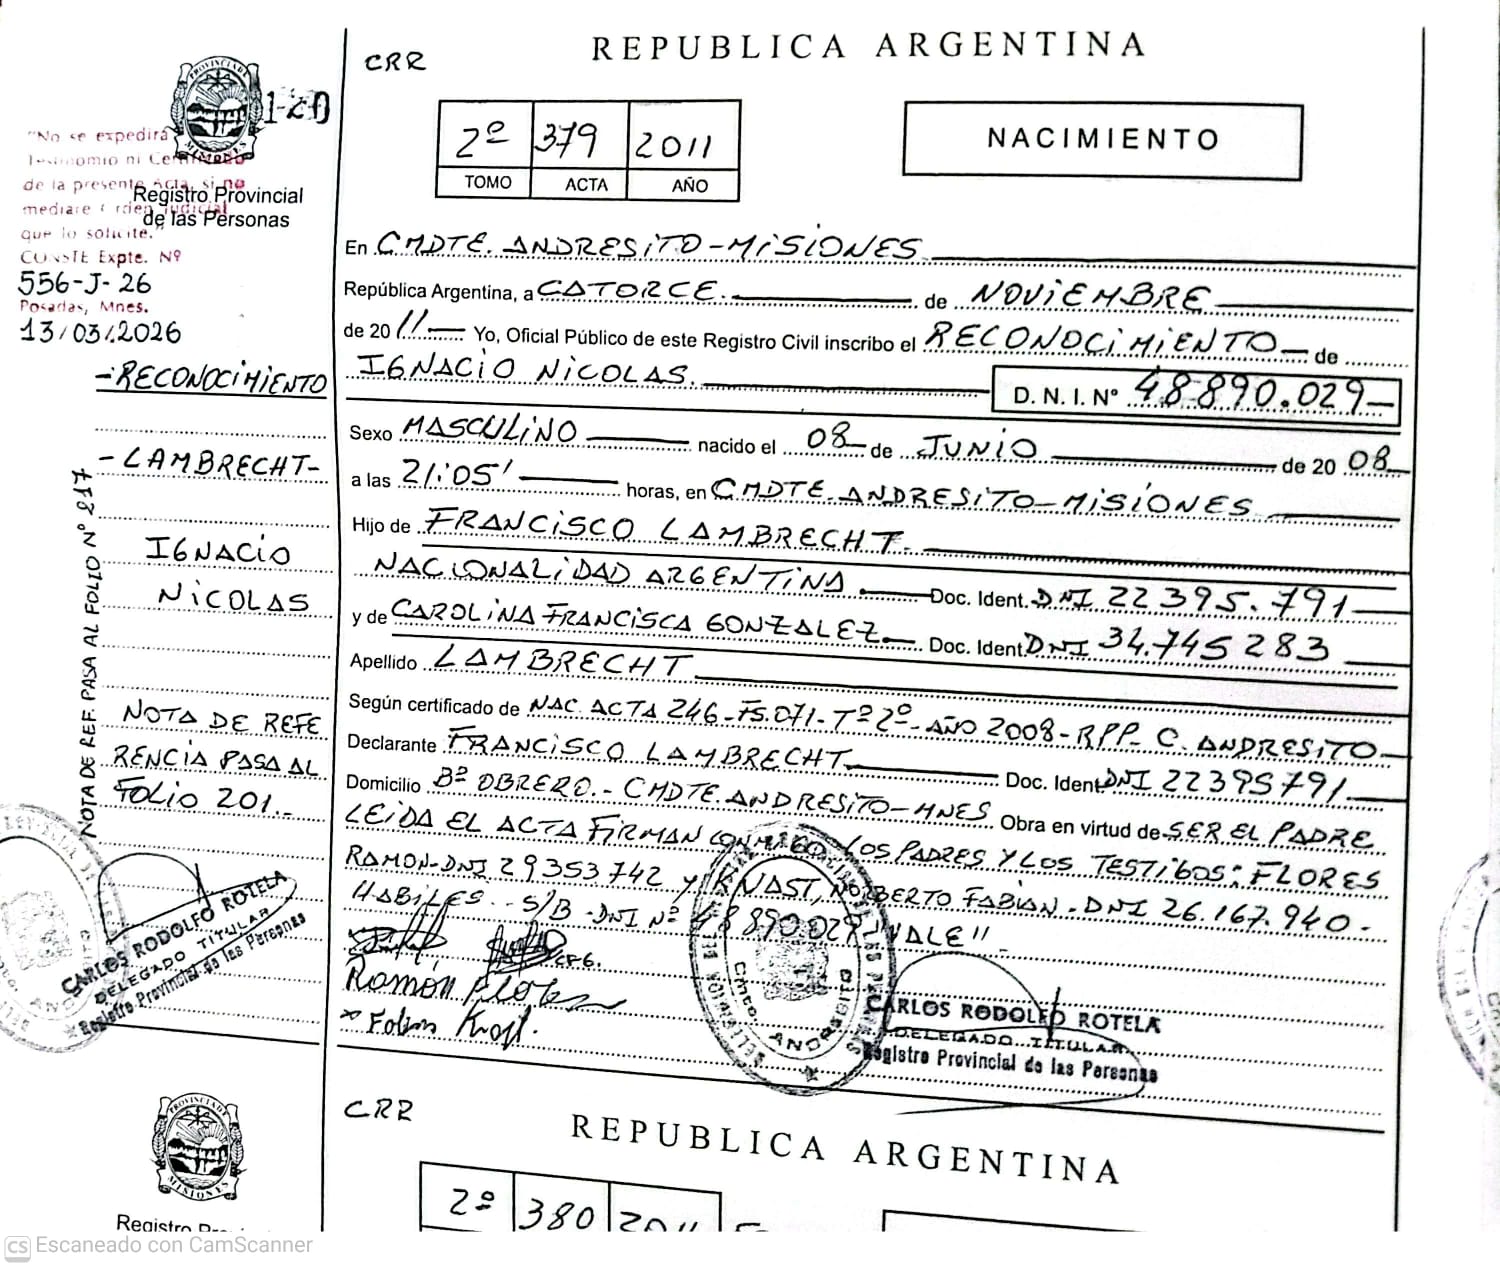 CRR
REPUBLICA ARGENTINA
PROVINCIA DE
MISIONES
"No se expedirá
Testimonio ni Certificado
de la presente Acta, si no
mediare orden judicial
que lo solicite."
CONSTE Expte. Nº
556-J-26
Posadas, Mnes.
13/03/2026
Registro Provincial
de las Personas
2º 379 2011
TOMO ACTA AÑO
NACIMIENTO
-RECONOCIMIENTO
-LAMBRECHT-
IGNACIO
NICOLAS
NOTA DE REFE
RENCIA PASA AL
FOLIO 201.-
NOTA DE REF. PASA AL FOLIO Nº 217
CARLOS RODOLFO ROTELA
DELEGADO TITULAR
Registro Provincial de las Personas
En CMDTE. ANDRESITO-MISIONES
República Argentina, a CATORCE. de NOVIEMBRE
de 2011 Yo, Oficial Público de este Registro Civil inscribo el RECONOCIMIENTO de
IGNACIO NICOLAS. D. N. I. Nº 48.890.029
Sexo MASCULINO nacido el 08 de JUNIO de 2008
a las 21:05' horas, en CMDTE. ANDRESITO-MISIONES
Hijo de FRANCISCO LAMBRECHT.
NACIONALIDAD ARGENTINA Doc. Ident. DNI 22395.791
y de CAROLINA FRANCISCA GONZALEZ Doc. Ident DNI 34.745283
Apellido LAMBRECHT
Según certificado de NAC. ACTA 246-FS.071-Tº2º-AÑO 2008-RPP- C. ANDRESITO-
Declarante FRANCISCO LAMBRECHT Doc. Ident DNI 22395791
Domicilio Bº OBRERO.- CMDTE. ANDRESITO-MNES Obra en virtud de SER EL PADRE
LEIDA EL ACTA FIRMAN CONMIGO LOS PADRES Y LOS TESTIGOS: FLORES
RAMON-DNI 29353742 y KNAST, NORBERTO FABIAN. DNI 26.167.940.-
HABILES.- S/B -DNI Nº 48890.029 "VALE"
CFG.
Ramón Flores
CARLOS RODOLFO ROTELA
DELEGADO TITULAR
Registro Provincial de las Personas
CMTE. ANDRESITO
CRR
REPUBLICA ARGENTINA
PROVINCIA DE
MISIONES
2º 380 2011
CS Escaneado con CamScanner